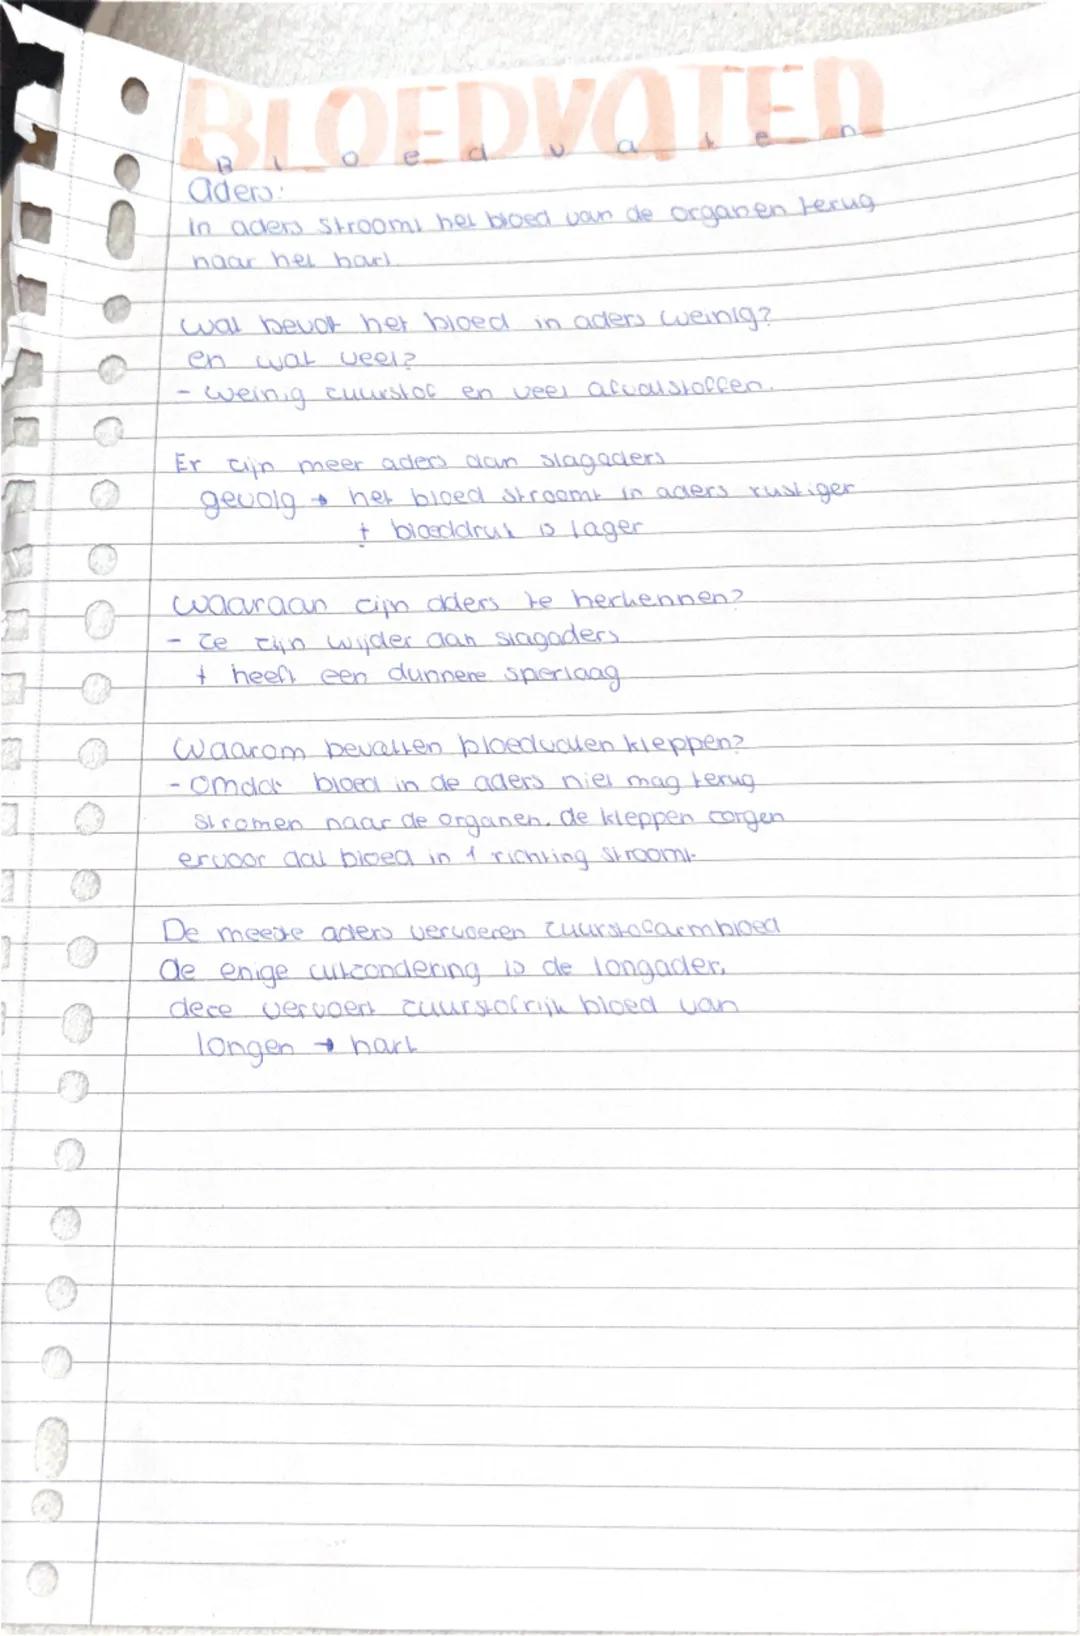 BLOEDVATEN
Bloedvaten
aders:
In aders stroomt het bloed van de organen terug
naar het hart.
wat bevat het bloed in aders weinig?
en wat veel?
- weinig zuurstof en veel afvalstoffen.
Er zijn meer aders dan slagaders
gevolg → het bloed stroomt in aders rustiger
+ bloeddruk is lager
waaraan zijn aders te herkennen?
- ze zijn wijder dan slagaders
+ heeft een dunnere spierlaag
Waarom bevatten bloedvaten kleppen?
- omdat bloed in de aders niet mag terug
stromen naar de organen. de kleppen zorgen
ervoor dat bloed in 1 richting stroomt.
De meeste aders vervoeren zuurstofarmbloed
de enige uitzondering is de longader,
deze vervoert zuurstofrijk bloed van
longen → hart